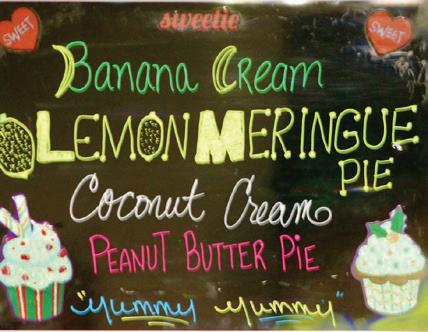 sweetie
SWEET SWEET
Banana Cream
LEMON MERINGUE
PIE
Coconut Cream
PEANUT BUTTER PiE
"yummy yummy"